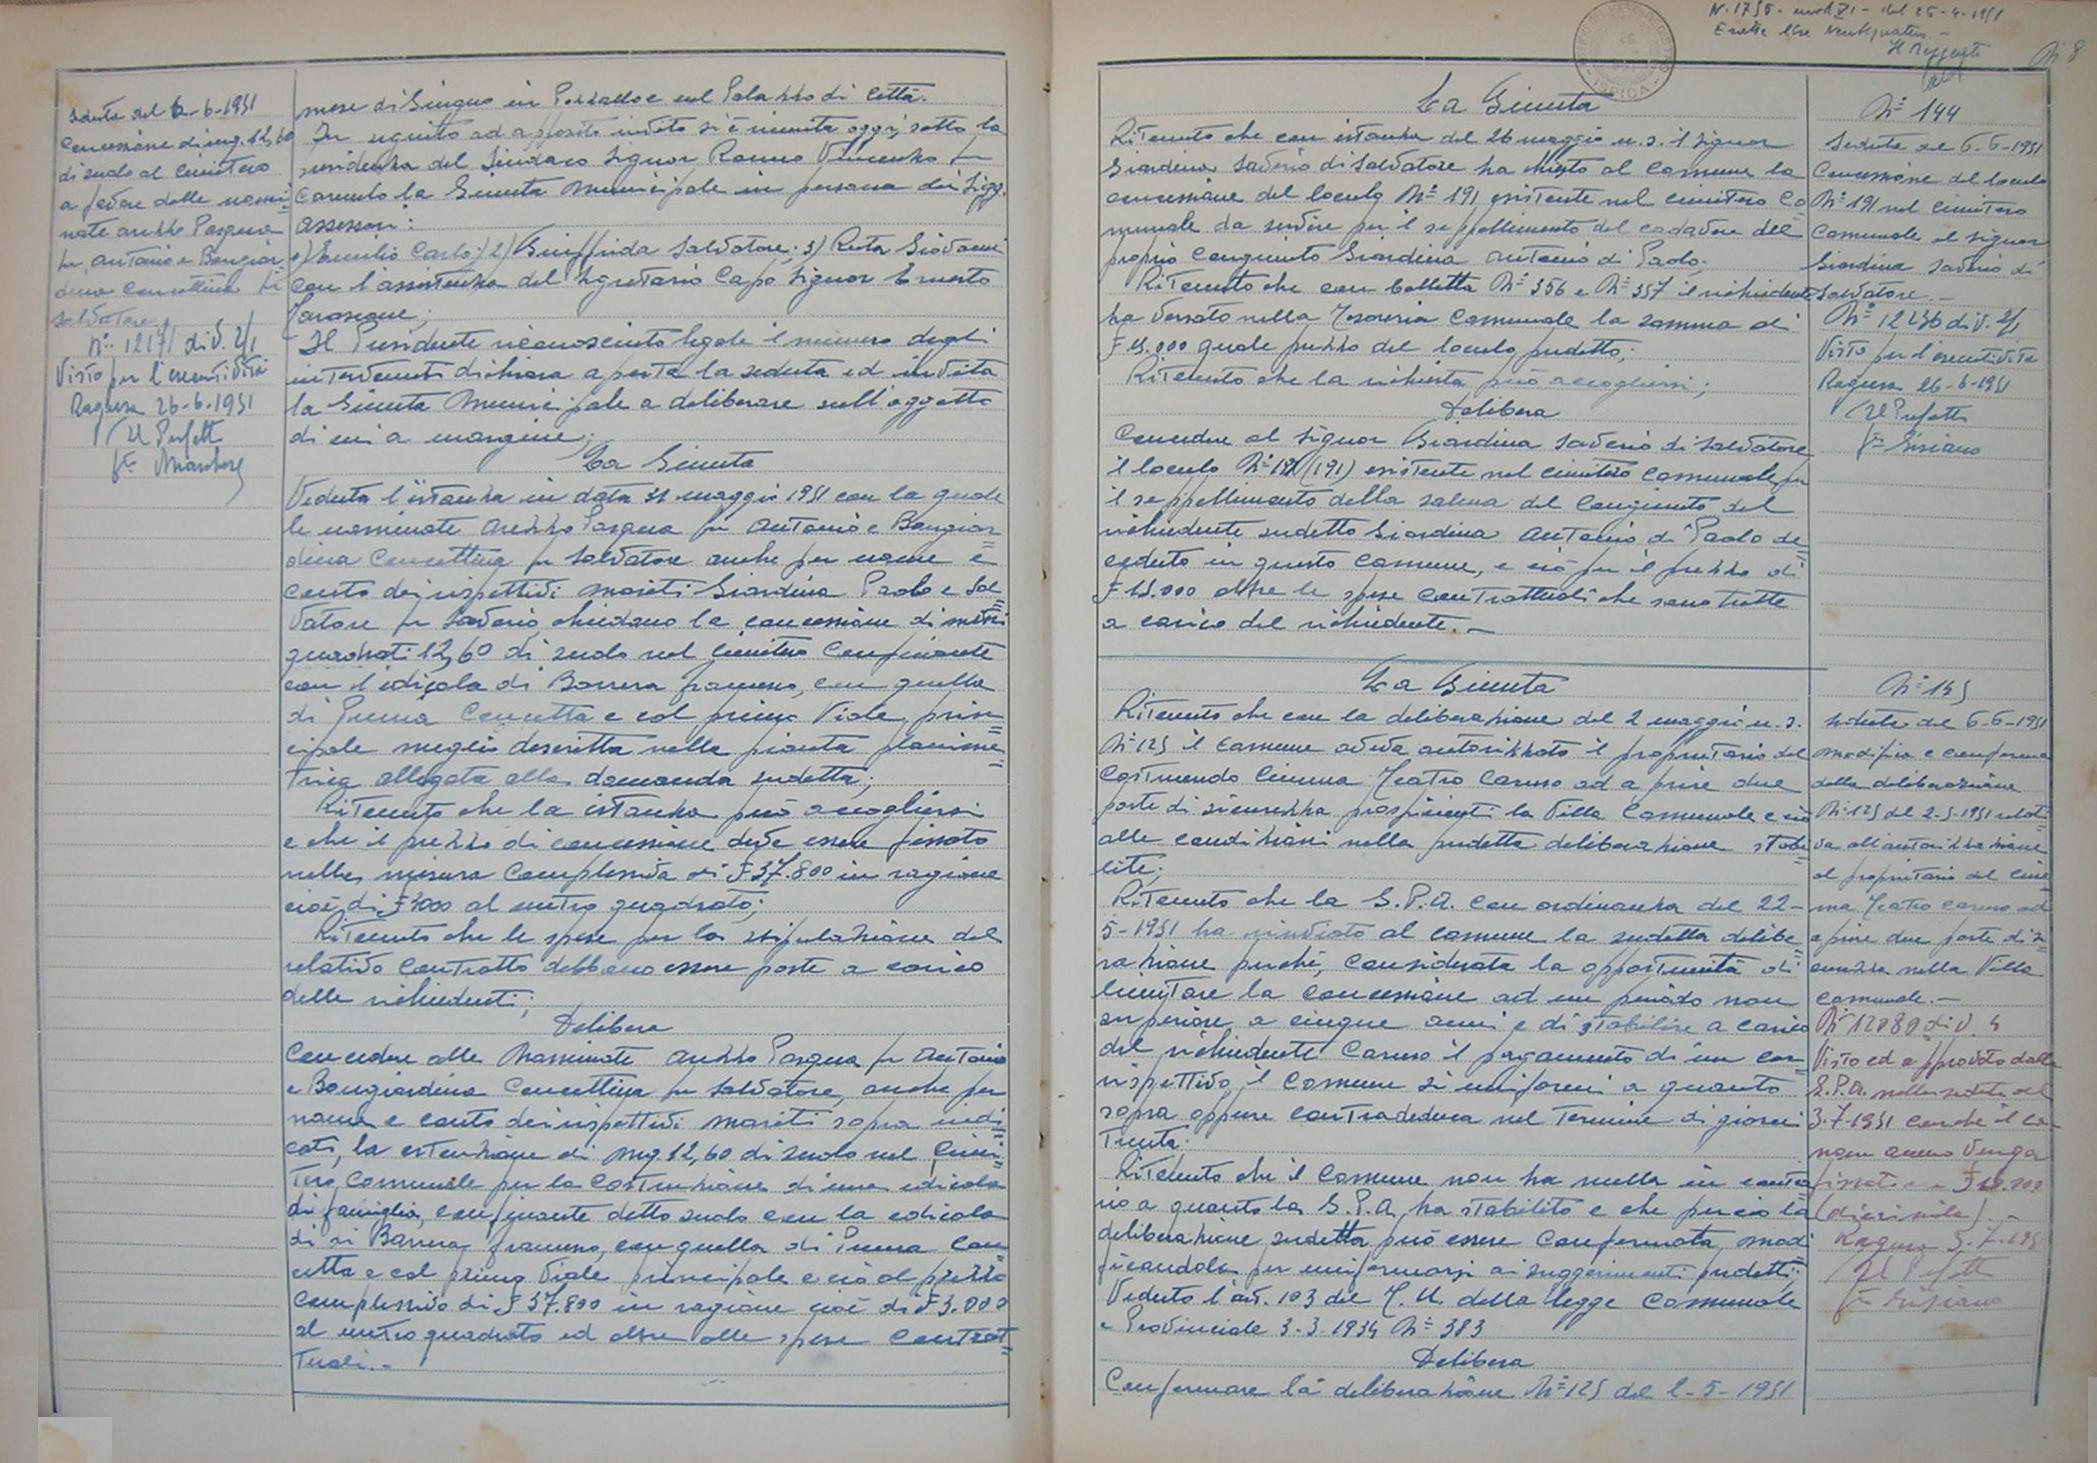 Seduta del 6-6-1951
Concessione di mq. 12,60
di suolo al Cimitero
a favore delle nomi=
nate Arezzo Pasqua
fu Antonio e Bongiar
dina Concettina fu
Salvatore.
N.° 12171 di V. 2/1
Visto per l'esecutività
Ragusa 26-6-1951
Il Prefetto
mese di Giugno in Pozzallo e nel Palazzo di Città.
In seguito ad apposito invito si è riunita oggi, sotto la
presidenza del Sindaco Signor Romeo Vincenzo fu
Carmelo la Giunta Municipale in persona dei Sigg.
Assessori:
Carlo; 2) Giuffrida Salvatore; 3) Ruta Giovanni
con l'assistenza del Segretario Capo Signor Ernesto
Il Presidente riconosciuto legale il numero degli
intervenuti dichiara aperta la seduta ed invita
la Giunta Municipale a deliberare sull'oggetto
di cui a margine;
La Giunta
Veduta l'istanza in data 31 maggio 1951 con la quale
le nominate Arezzo Pasqua fu Antonio e Bongiar
dina Concettina fu Salvatore anche per nome e
conto dei rispettivi mariti Giardina Paolo e Sal
vatore fu Saverio, chiedono la concessione di metri
quadrati 12,60 di suolo nel Cimitero confinante
con l'edicola di Barrera Francesco, con quella
di Puma Concetta e col primo Viale prin=
cipale meglio descritta nella pianta planime=
trica allegata alla domanda sudetta;
Ritenuto che la istanza può accogliersi
e che il prezzo di concessione deve essere fissato
nella misura complessiva di £ 37.800 in ragione
cioè di £ 3000 al metro quadrato;
Ritenuto che le spese per la stipulazione del
relativo contratto debbono essere poste a carico
delle richiedenti;
Delibera
Concedere alle nominate Arezzo Pasqua fu Antonio
e Bongiardina Concettina fu Salvatore, anche per
nome e conto dei rispettivi mariti sopra indi=
cati, la estenzione di mq. 12,60 di suolo nel Cimi=
tero Comunale per la costruzione di una edicola
di famiglia, confinante detto suolo con la edicola
di Barrera Francesco, con quella di Puma Con=
cetta e col primo Viale principale e ciò al prezzo
complessivo di £ 37.800 in ragione cioè di £ 3.000
al metro quadrato ed oltre alle spese contrat=
tuali.-
N. 1755 - del 25-4-1951
Esatte lire
ISPICA
N° 8
La Giunta
Ritenuto che con istanza del 26 maggio u.s. il Signor
Giardina Saverio di Salvatore ha chiesto al Comune la
concessione del loculo N° 191 esistente nel cimitero Co=
munale da servire per il seppellimento del cadavere del
proprio congiunto Giardina Antonio di Paolo;
Ritenuto che con bolletta N° 356 e N° 357 il richiedente
ha versato nella Tesoreria Comunale la somma di
£ 15.000 quale prezzo del loculo predetto;
Ritenuto che la richiesta può accogliersi;
Delibera
Concedere al Signor Giardina Saverio di Salvatore
il loculo N° 191 (191) esistente nel cimitero comunale per
il seppellimento della salma del congiunto del
richiedente sudetto Giardina Antonio di Paolo de=
ceduto in questo Comune, e ciò per il prezzo di
£ 15.000 oltre le spese contrattuali che sono tutte
a carico del richiedente.-
N° 144
Seduta del 6-6-1951
Concessione del loculo
N° 191 nel cimitero
comunale al Signor
Giardina Saverio di
Salvatore.-
N° 12236 di V. 2/1
Visto per l'esecutività
Ragusa 26-6-1951
Il Prefetto
La Giunta
Ritenuto che con la deliberazione del 2 maggio u.s.
N° 125 il Comune aveva autorizzato il proprietario del
costruendo Cinema Teatro Caruso ad aprire due
porte di sicurezza prospicienti la Villa Comunale e ciò
alle condizioni nella predetta deliberazione stabi=
lite;
Ritenuto che la G.P.A. con ordinanza del 22-
5-1951 ha rinviato al Comune la sudetta delibe=
razione perché, considerata la opportunità di
limitare la concessione ad un periodo non
superiore a cinque anni e di stabilire a carico
del richiedente Caruso il pagamento di un cor=
rispettivo, il Comune si uniformi a quanto
sopra oppure controdeduca nel termine di giorni
trenta.
Ritenuto che il Comune non ha nulla in contra
rio a quanto la G.P.A. ha stabilito e che perciò la
deliberazione sudetta può essere confermata, modi
ficandola per uniformarsi ai suggerimenti predetti;
Veduto l'art. 103 del T.U. della legge Comunale
e Provinciale 3-3-1934 N° 383
Delibera
Confermare la deliberazione N° 125 del 2-5-1951
N° 145
Seduta del 6-6-1951
Modifica e conferma
della deliberazione
N° 125 del 2-5-1951 relati
va all'autorizzazione
al proprietario del Cine
ma Teatro Caruso ad
aprire due porte di si=
curezza nella Villa
Comunale.-
N° 12080 di V. 4
Visto ed approvato dalla
G.P.A. nella seduta del
3-7-1951 che il ca=
none annuo venga
fissato in £ 10.000
(diecimila).-
Ragusa 5-7-1951
Il Prefetto